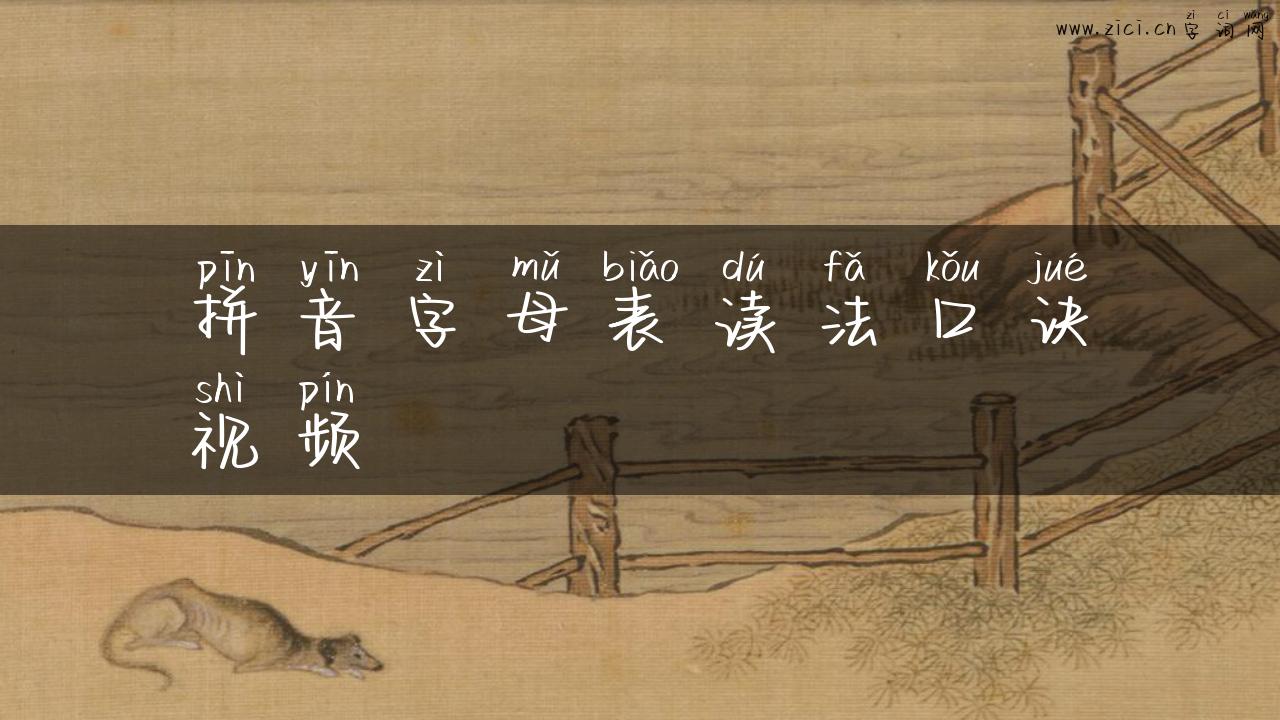 zì cí wǎng
www.zici.cn 字词网
pīn yīn zì mǔ biǎo dú fǎ kǒu jué
拼音字母表读法口诀
shì pín
视频